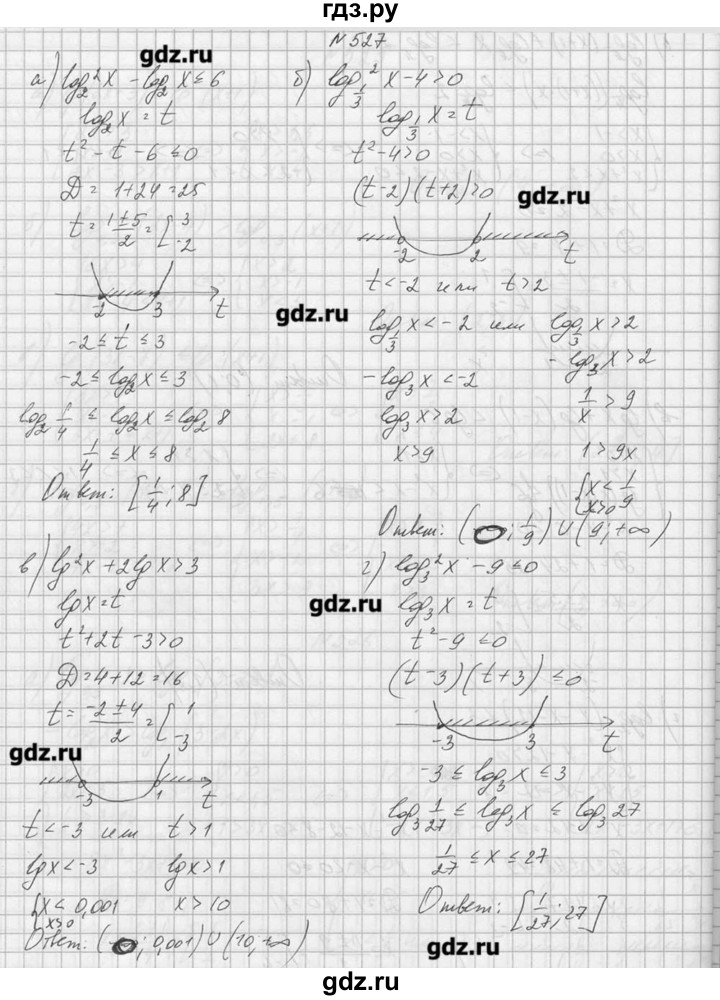 гдз.ру
№527
gdz.ru
а) log₂²x - log₂x ≤ 6
log₂x = t
t² - t - 6 ≤ 0
D = 1+24 = 25
t = (1±5)/2 = [3; -2
-2 3 t
gdz.ru
-2 ≤ t ≤ 3
-2 ≤ log₂x ≤ 3
log₂ 1/4 ≤ log₂x ≤ log₂ 8
1/4 ≤ x ≤ 8
Ответ: [1/4; 8]
б) log²_{1/3} x - 4 > 0
log_{1/3} x = t
t² - 4 > 0
(t-2)(t+2) > 0
gdz.ru
-2 2 t
t < -2 или t > 2
log_{1/3} x < -2 или log_{1/3} x > 2
-log₃x < -2 -log₃x > 2
log₃x > 2 1/x > 9
x > 9 1 > 9x
{x < 1/9
x > 0
Ответ: (0; 1/9) ∪ (9; +∞)
в) lg²x + 2lgx > 3
lgx = t
t² + 2t - 3 > 0
D = 4+12 = 16
t = (-2±4)/2 = [1; -3
gdz.ru
-3 1 t
t < -3 или t > 1
lgx < -3 lgx > 1
{x < 0,001 x > 10
x > 0
Ответ: (0; 0,001) ∪ (10, +∞)
г) log₃²x - 9 ≤ 0
gdz.ru
log₃x = t
t² - 9 ≤ 0
(t-3)(t+3) ≤ 0
-3 3 t
-3 ≤ log₃x ≤ 3
log₃ 1/27 ≤ log₃x ≤ log₃ 27
1/27 ≤ x ≤ 27
Ответ: [1/27; 27]
gdz.ru
gdz.ru